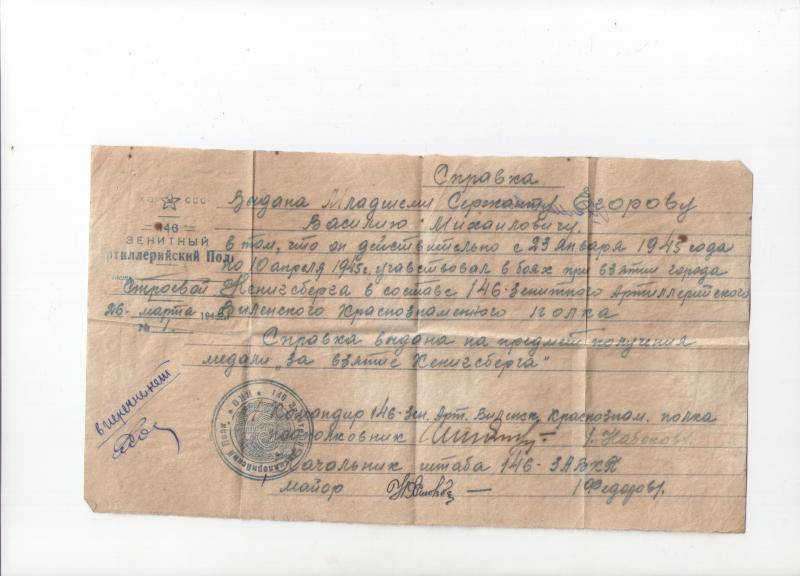 Справка
Выдана Младшему Сержанту Егорову
Василию Михайловичу.
в том, что он действительно с 23 Января 1945 года
по 10 апреля 1945г. учавствовал в боях при взятии города
Кенигсберга в составе 146-Зенитного Артиллерийского
Виленского Краснознаменного полка
Справка выдана на предмет получения
медали „За взятие Кенигсберга"
СССР
146
ЗЕНИТНЫЙ
ртиллерийский Пол
Строевой
26 марта 194
№
в перечи нет
Командир 146-Зен. Арт. Виленск. Краснознам. полка
подполковник /. Набоков/.
Начальник штаба 146-ЗАВКП
майор /Федодов/.
146
НКО